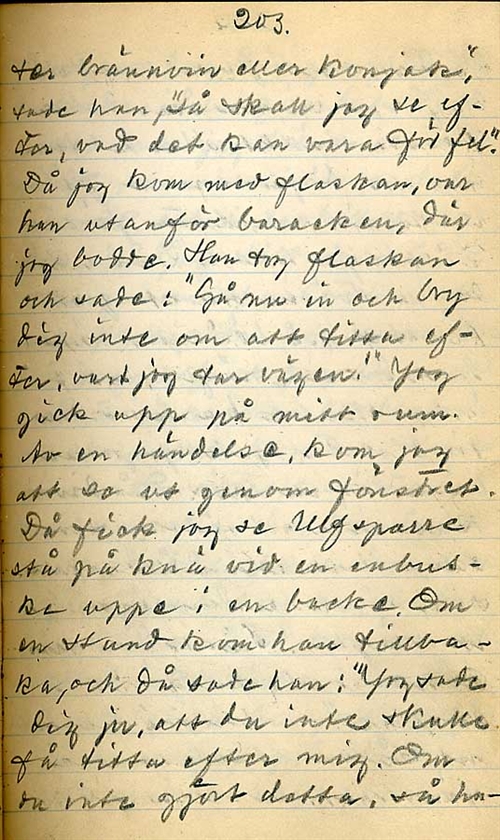 203.
ter brännvin eller konjak",
sade han, "så skall jag se ef-
ter, vad det kan vara för fel."
Då jag kom med flaskan, var
han utanför baracken, där
jag bodde. Han tog flaskan
och sade: "Gå nu in och bry
dig inte om att titta ef-
ter, vart jag tar vägen!" Jag
gick upp på mitt rum.
Av en händelse, kom jag
att se ut genom fönstret.
Då fick jag se Ulfsparre
stå på knä vid en enbus-
ke uppe i en backe. Om
en stund kom han tillba-
ka, och då sade han: "Jag sade
dig ju, att du inte skulle
få titta efter mig. Om
du inte gjort detta, så ha-